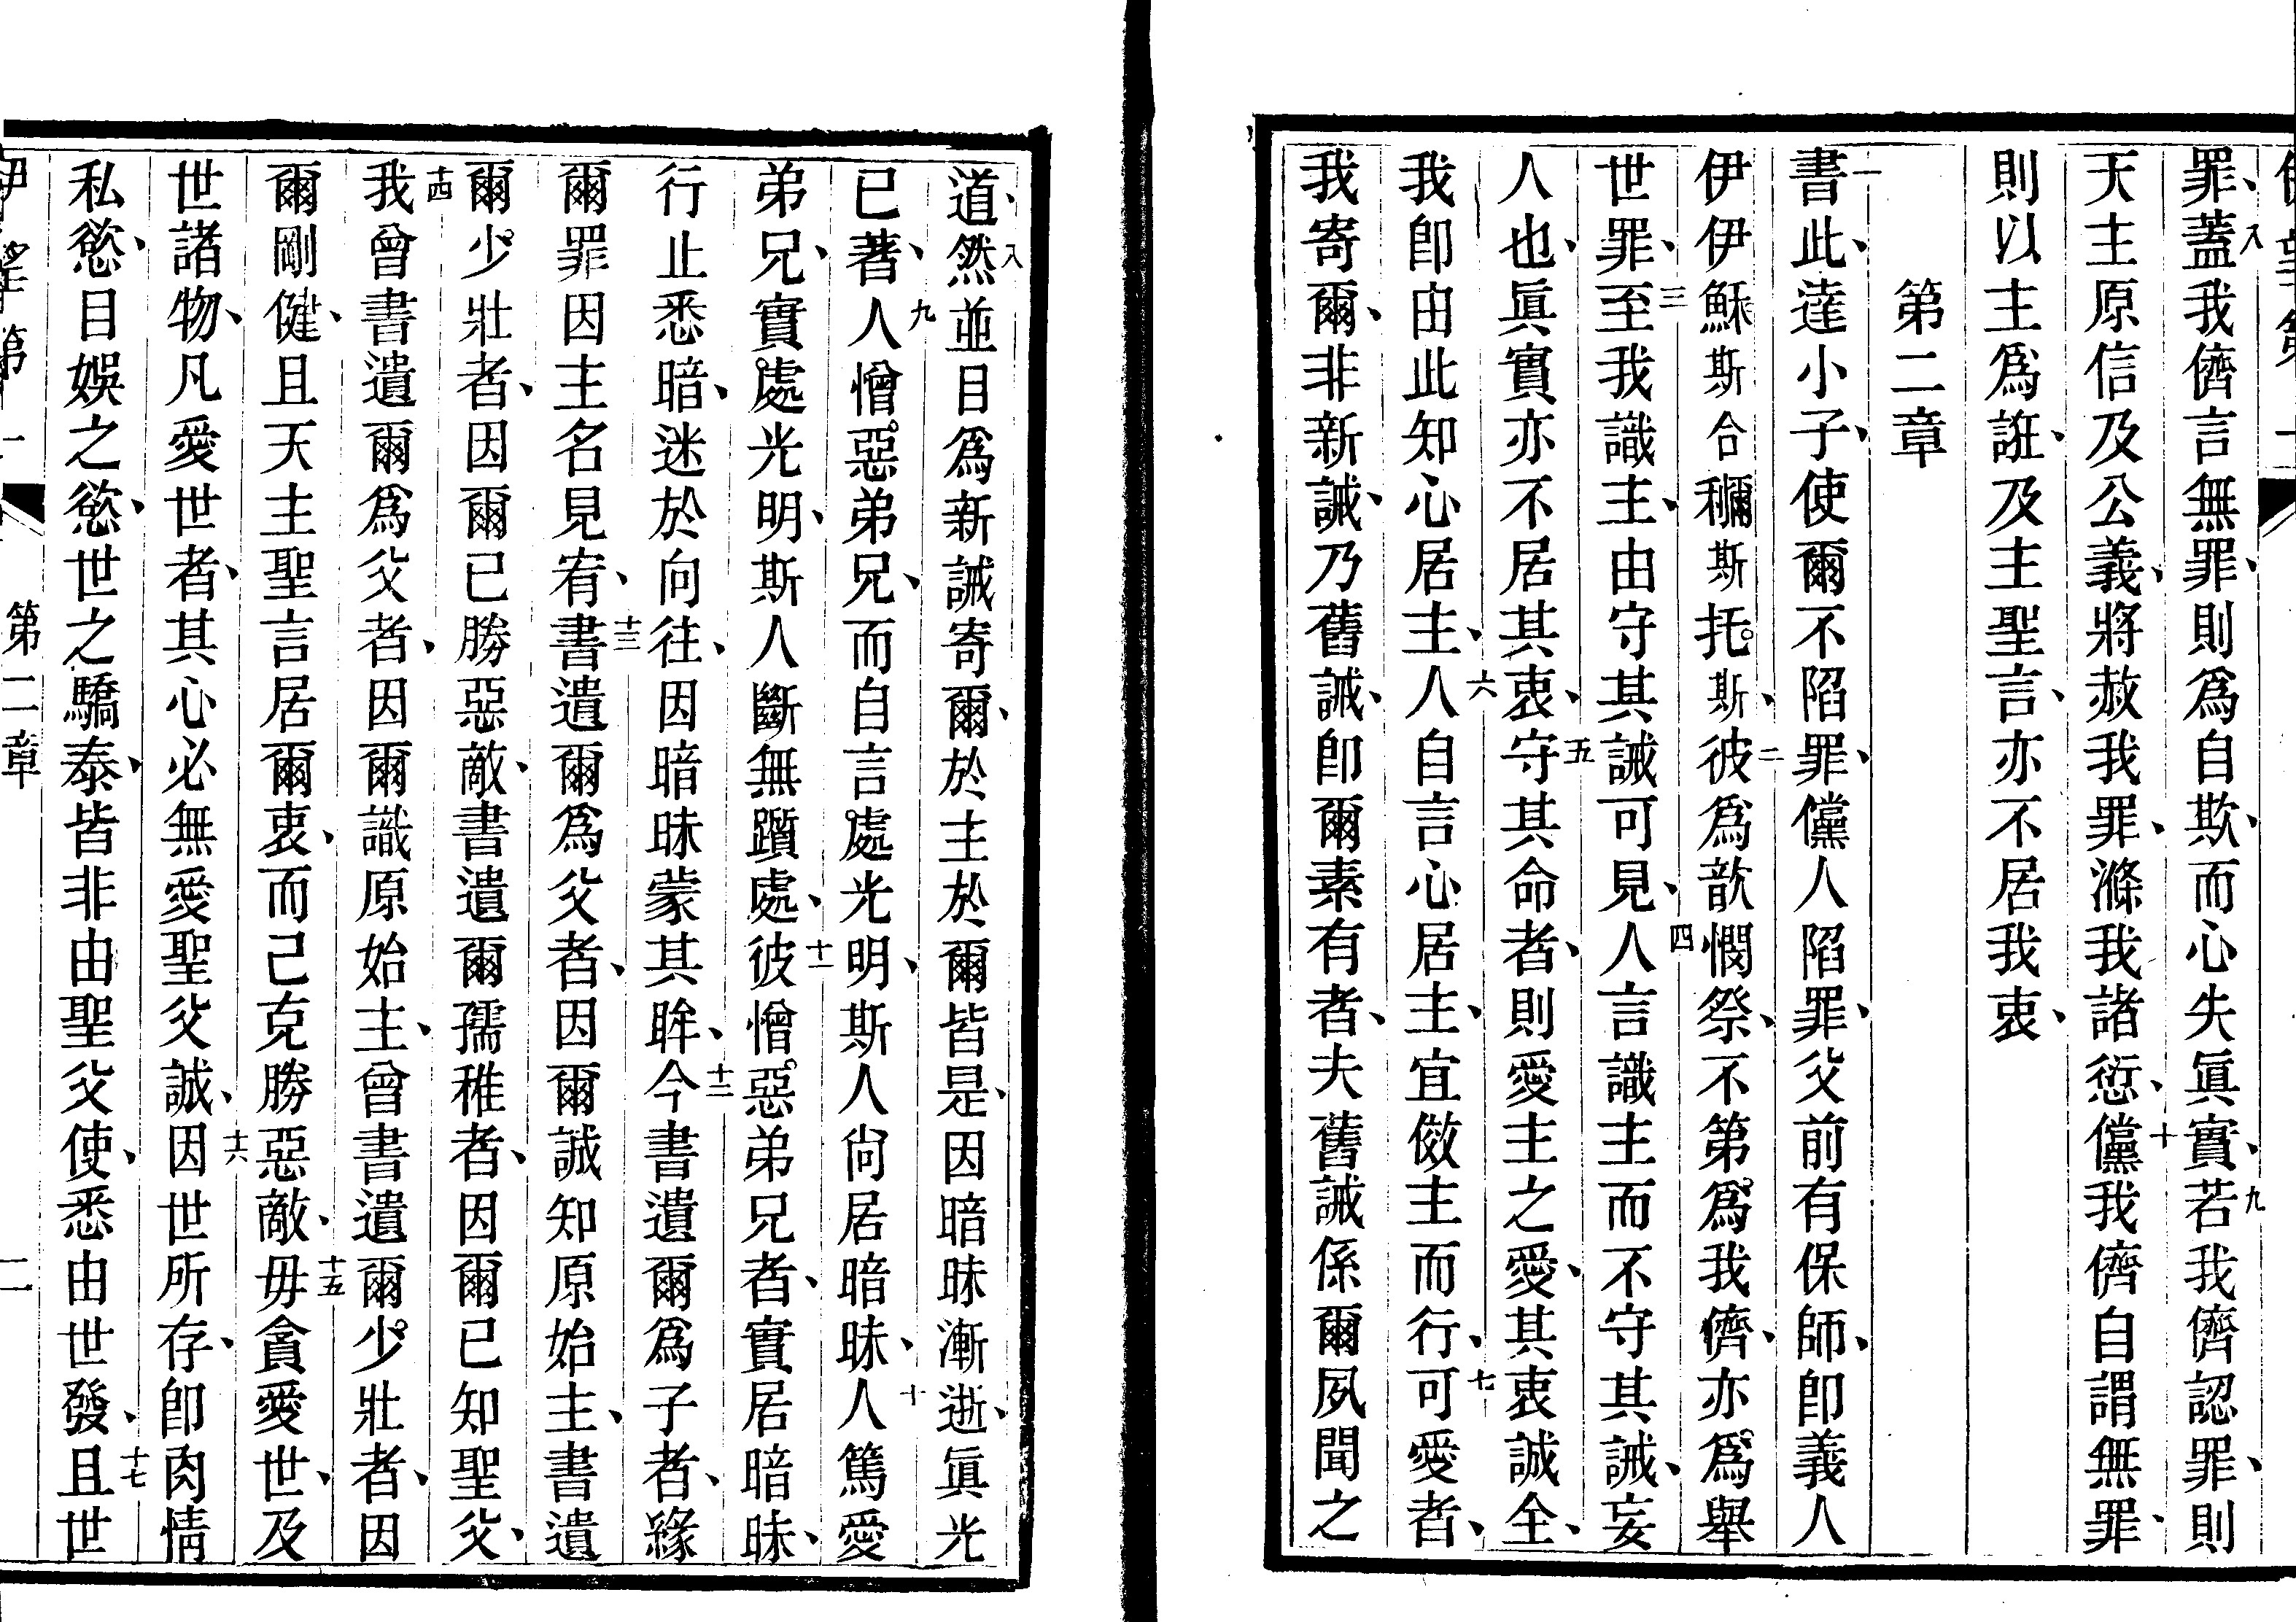 罪、八蓋我儕言無罪、則爲自欺、而心失眞實、九若我儕認罪、則
天主原信及公義、將赦我罪、滌我諸愆、十儻我儕自謂無罪、
則以主爲誑、及主聖言、亦不居我衷、
第二章
一書此、達小子、使爾不陷罪、儻人陷罪、父前有保師、卽義人
伊伊穌斯合穪斯托斯、二彼爲歆憫祭、不第爲我儕、亦爲舉
世罪、三至我識主、由守其誡可見、四人言識主而不守其誡、妄
人也、眞實亦不居其衷、五守其命者、則愛主之愛、其衷誠全、
我卽由此知心居主、六人自言心居主、宜倣主而行、七可愛者、
我寄爾、非新誡、乃舊誡、卽爾素有者、夫舊誡係爾夙聞之
道、八然並目爲新誡寄爾、於主於爾皆是、因暗昧漸逝、眞光
已著、九人憎惡弟兄、而自言處光明、斯人尙居暗昧、十人篤愛
弟兄、實處光明、斯人斷無躓處、十一彼憎惡弟兄者、實居暗昧、
行止悉暗、迷於向往、因暗昧蒙其眸、十二今書遺爾爲子者、緣
爾罪因主名見宥、十三書遺爾爲父者、因爾誠知原始主、書遺
爾少壯者、因爾已勝惡敵、書遺爾孺稚者、因爾已知聖父、
十四我曾書遺爾爲父者、因爾識原始主、曾書遺爾少壯者、因
爾剛健、且天主聖言居爾衷、而己克勝惡敵、十五毋貪愛世、及
世諸物、凡愛世者、其心必無愛聖父誠、十六因世所存、卽肉情
私慾、目娛之慾、世之驕泰、皆非由聖父使、悉由世發、十七且世
第二章
二